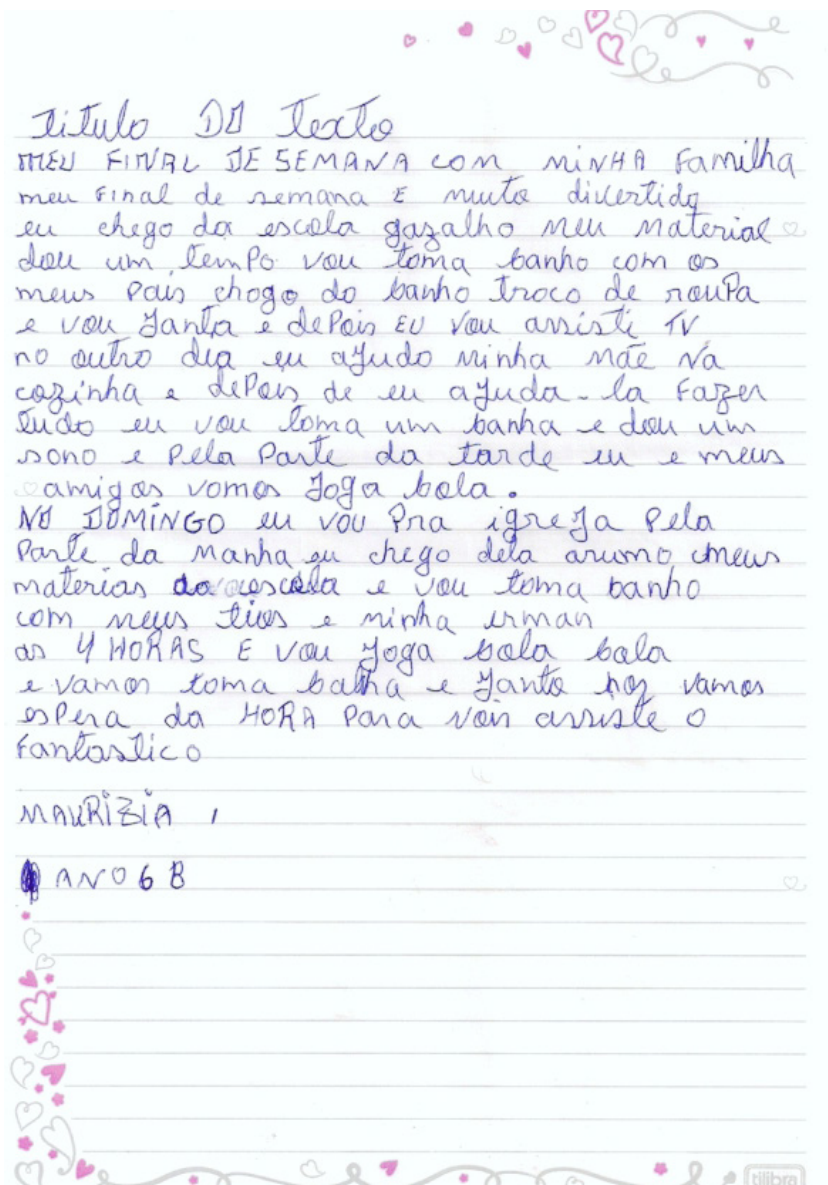 Titulo DO Texto
MEU FINAL DE SEMANA com minHA Familha
meu Final de semana E muito divertido
eu chego da escola gazalho meu material
dou um tempo vou toma banho com os
meus Pais chogo do banho troco de rouPa
e vou Janta e dePois EU vou assisti TV
no outro dia eu aJudo minha mãe na
cozinha e dePois de eu aJuda-la Fazer
tudo eu vou toma um banha e dou um
sono e Pela Parte da tarde eu e meus
amigos vamos Joga bola.
NO DOMINGO eu vou Pra igreJa Pela
Parte da manha eu chego dela arumo meus
materias da escola e vou toma banho
com meus tios e minha irman
as 4 HORAS E vou Joga bola bola
e vamos toma banha e Janta noz vamos
esPera da HORA Para nois assiste o
Fantastico
MAURIZIA,
ANO 6 B
tilibra